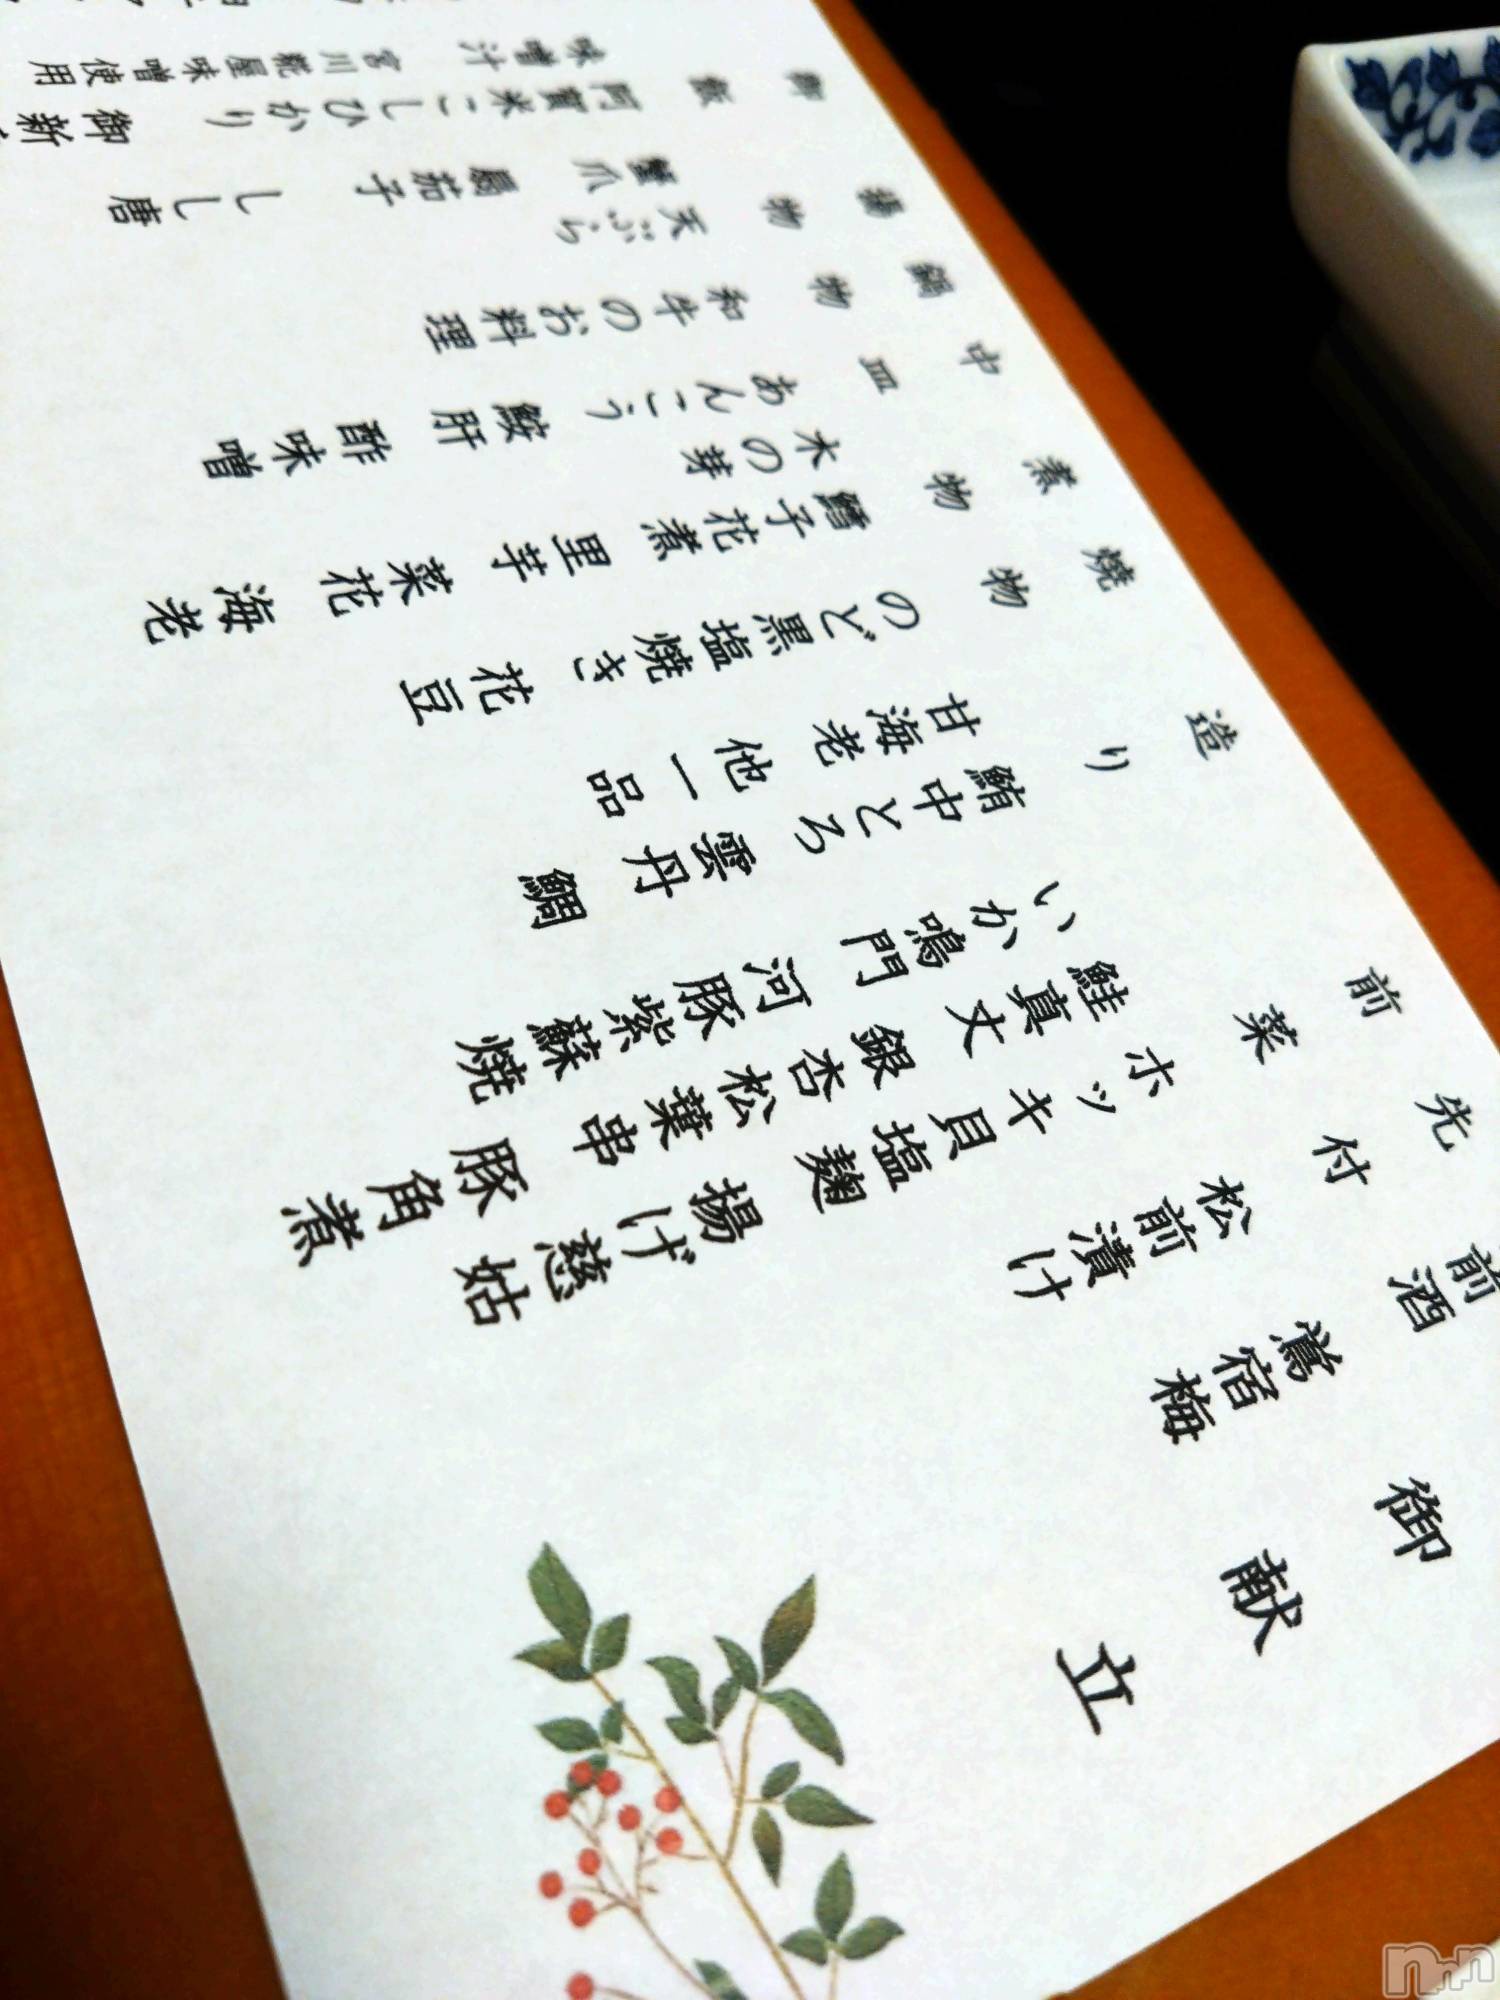 御献立
前酒　鶯宿梅
先付　松前漬け
前菜　ホッキ貝塩麹　揚げ慈姑
鮭真丈　銀杏松葉串　豚角煮
いか鳴門　河豚紫蘇焼
造り　鮪中とろ　雲丹　鯛
甘海老　他一品
焼物　のど黒塩焼き　花豆
煮物　鱈子花煮　里芋　菜花　海老
木の芽
中皿　あんこう　鮟肝　酢味噌
鍋物　和牛のお料理
揚物　天ぷら
蟹爪　扇茄子　しし唐
御飯　阿賀米こしひかり　御新
味噌汁　宮川糀屋味噌使用